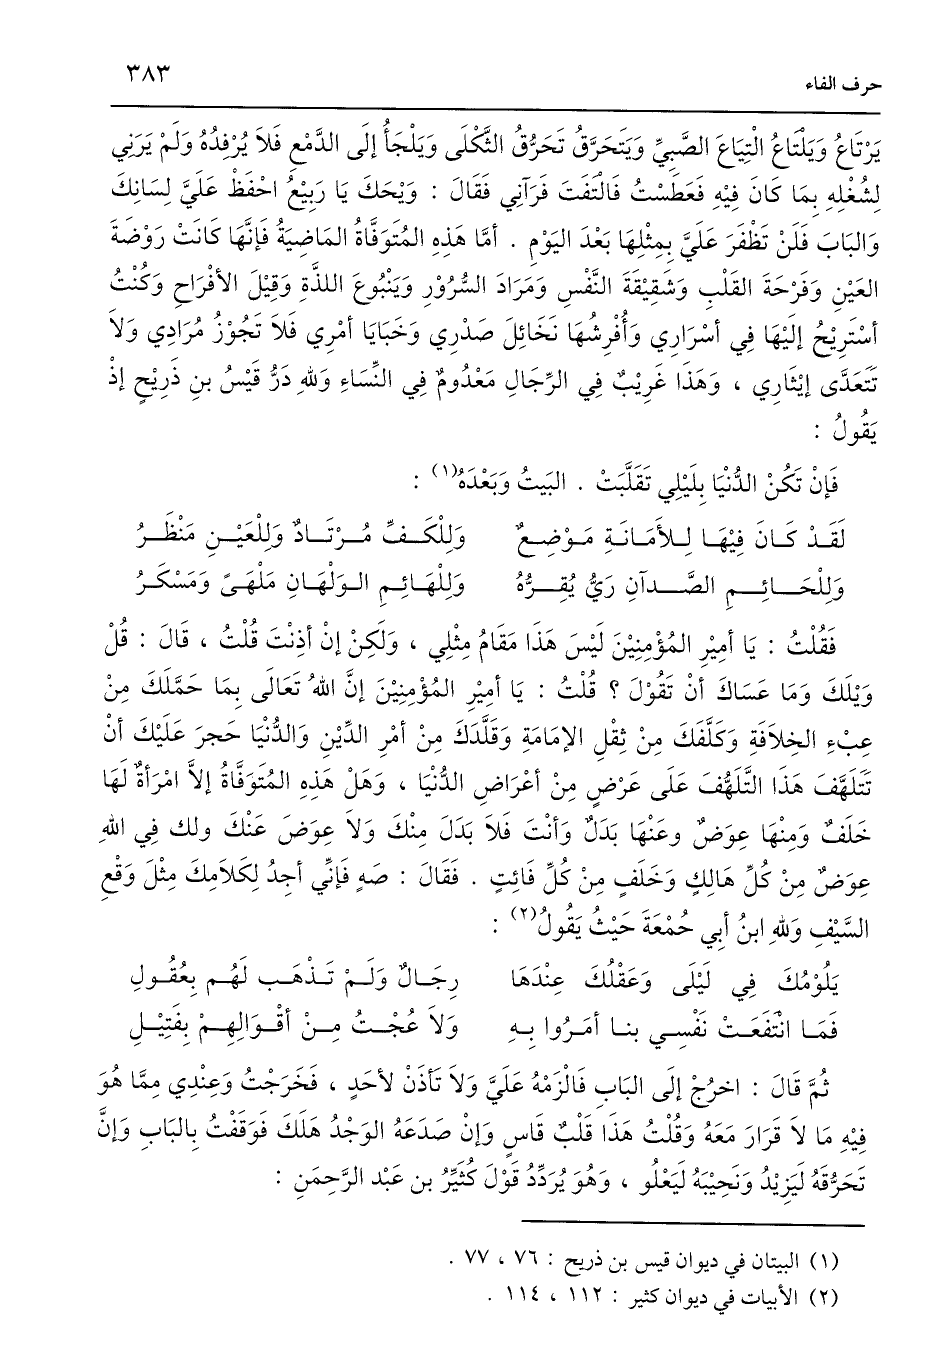 حرف الفاء ٣٨٣
يَرْتَاعُ وَيَلْتَاعُ الْتِيَاعَ الصَّبِيِّ وَيَتَحَرَّقُ تَحَرُّقُ الثَّكْلَى وَيَلْجَأُ إلَى الدَّمْعِ فَلاَ يُرْفِدُهُ وَلَمْ يَرَنِي
لِشُغْلِهِ بِمَا كَانَ فِيْهِ فَعَطَسْتُ فَالْتَفَتَ فَرَآنِي فَقَالَ : وَيْحَكَ يَا رَبِيْعُ احْفَظْ عَلَيَّ لِسَانِكَ
وَالبَابَ فَلَنْ تَظْفَرَ عَلَيَّ بِمِثْلِهَا بَعْدَ اليَوْمِ . أمَّا هَذِهِ المُتَوَفَّاةُ المَاضِيَةُ فَإِنَّهَا كَانَتْ رَوْضَةَ
العَيْنِ وَفَرْحَةَ القَلْبِ وَشَقِيْقَةَ النَّفْسِ وَمَرَادَ السُّرُوْرِ وَيَنْبُوعَ اللذَّةِ وَقِيْلَ الأفْرَاحِ وَكُنْتُ
أسْتَرِيْحُ إلَيْهَا فِي أسْرَارِي وَأُفْرِشُهَا نَخَائِلَ صَدْرِي وَخَبَايَا أمْرِي فَلاَ تَجُوْزُ مُرَادِي وَلاَ
تَتَعَدَّى إيْثَارِي ، وَهَذَا غَرِيْبٌ فِي الرِّجَالِ مَعْدُومٌ فِي النِّسَاءِ وَللهِ دَرُّ قَيْسُ بنِ ذَرِيْحٍ إذْ
يَقُولُ :
فَإنْ تَكُنْ الدُّنْيَا بِلَيْلِي تَقَلَّبَتْ . البَيتُ وَبَعْدَهُ(١) :
لَقَدْ كَانَ فِيْهَا لِلأمَانَةِ مَوْضِعٌ وَلِلْكَفِّ مُرْتَادٌ وَلِلْعَيْنِ مَنْظَرُ
وَلِلْحَائِمِ الصَّدآنِ رَيٌّ يُقِرُّهُ وَلِلْهَائِمِ الوَلْهَانِ مَلْهَىً وَمَسْكَرُ
فَقُلْتُ : يَا أمِيْرِ المُؤْمِنِيْنَ لَيْسَ هَذَا مَقَامُ مِثْلِي ، وَلَكِنْ إنْ أذِنْتَ قُلْتُ ، قَالَ : قُلْ
وَيْلَكَ وَمَا عَسَاكَ أنْ تَقُوْلَ ؟ قُلْتُ : يَا أمِيْرِ المُؤْمِنِيْنَ إنَّ اللهُ تَعَالَى بِمَا حَمَّلَكَ مِنْ
عِبْءِ الخِلاَفَةِ وَكَلَّفَكَ مِنْ ثِقْلِ الإمَامَةِ وَقَلَّدَكَ مِنْ أمْرِ الدِّيْنِ وَالدُّنْيَا حَجرَ عَلَيْكَ أنْ
تَتَلَهَّفَ هَذَا التَّلَهُّفَ عَلَى عَرَضٍ مِنْ أعْرَاضِ الدُّنْيَا ، وَهَلْ هَذِهِ المُتَوَفَّاةُ إلاَّ امْرَأةٌ لَهَا
خَلَفٌ وَمِنْهَا عِوَضٌ وعَنْهَا بَدَلٌ وَأنْتَ فَلاَ بَدَلَ مِنْكَ وَلاَ عِوَضَ عَنْكَ ولك فِي اللهِ
عِوَضٌ مِنْ كُلِّ هَالِكٍ وَخَلَفٍ مِنْ كُلِّ فَائِتٍ . فَقَالَ : صَهٍ فَإنِّي أجِدُ لِكَلاَمِكَ مِثْلَ وَقْعِ
السَّيْفِ وَللهِ ابنُ أبِي حُمْعَةَ حَيْثُ يَقُولُ(٢) :
يَلُوْمُكَ فِي لَيْلَى وَعَقْلُكَ عِنْدَهَا رِجَالٌ وَلَمْ تَذْهَب لَهُم بِعُقُولِ
فَمَا انْتَفَعَتْ نَفْسِي بنا أمَرُوا بِهِ وَلاَ عُجْتُ مِنْ أقْوَالِهِمْ بِفَتِيْلِ
ثُمَّ قَالَ : اخرُجْ إلَى البَابِ فَالْزَمْهُ عَلَيَّ وَلاَ تَأذَنْ لأحَدٍ ، فَخَرَجْتُ وَعِنْدِي مِمَّا هُوَ
فِيْهِ مَا لاَ قَرَارَ مَعَهُ وَقُلْتُ هَذَا قَلْبٌ قَاسٍ وَإنْ صَدَعَهُ الوَجْدُ هَلَكَ فَوَقَفْتُ بِالبَابِ وَإنَّ
تَحَرُّقَهُ لَيَزِيْدُ وَنَحِيْبَهُ لَيَعْلُو ، وَهُوَ يُرَدِّدُ قَوْلَ كُثَيِّرُ بن عَبْد الرَّحِمَنِ :
(١) البيتان في ديوان قيس بن ذريح : ٧٦ ، ٧٧ .
(٢) الأبيات في ديوان كثير : ١١٢ ، ١١٤ .